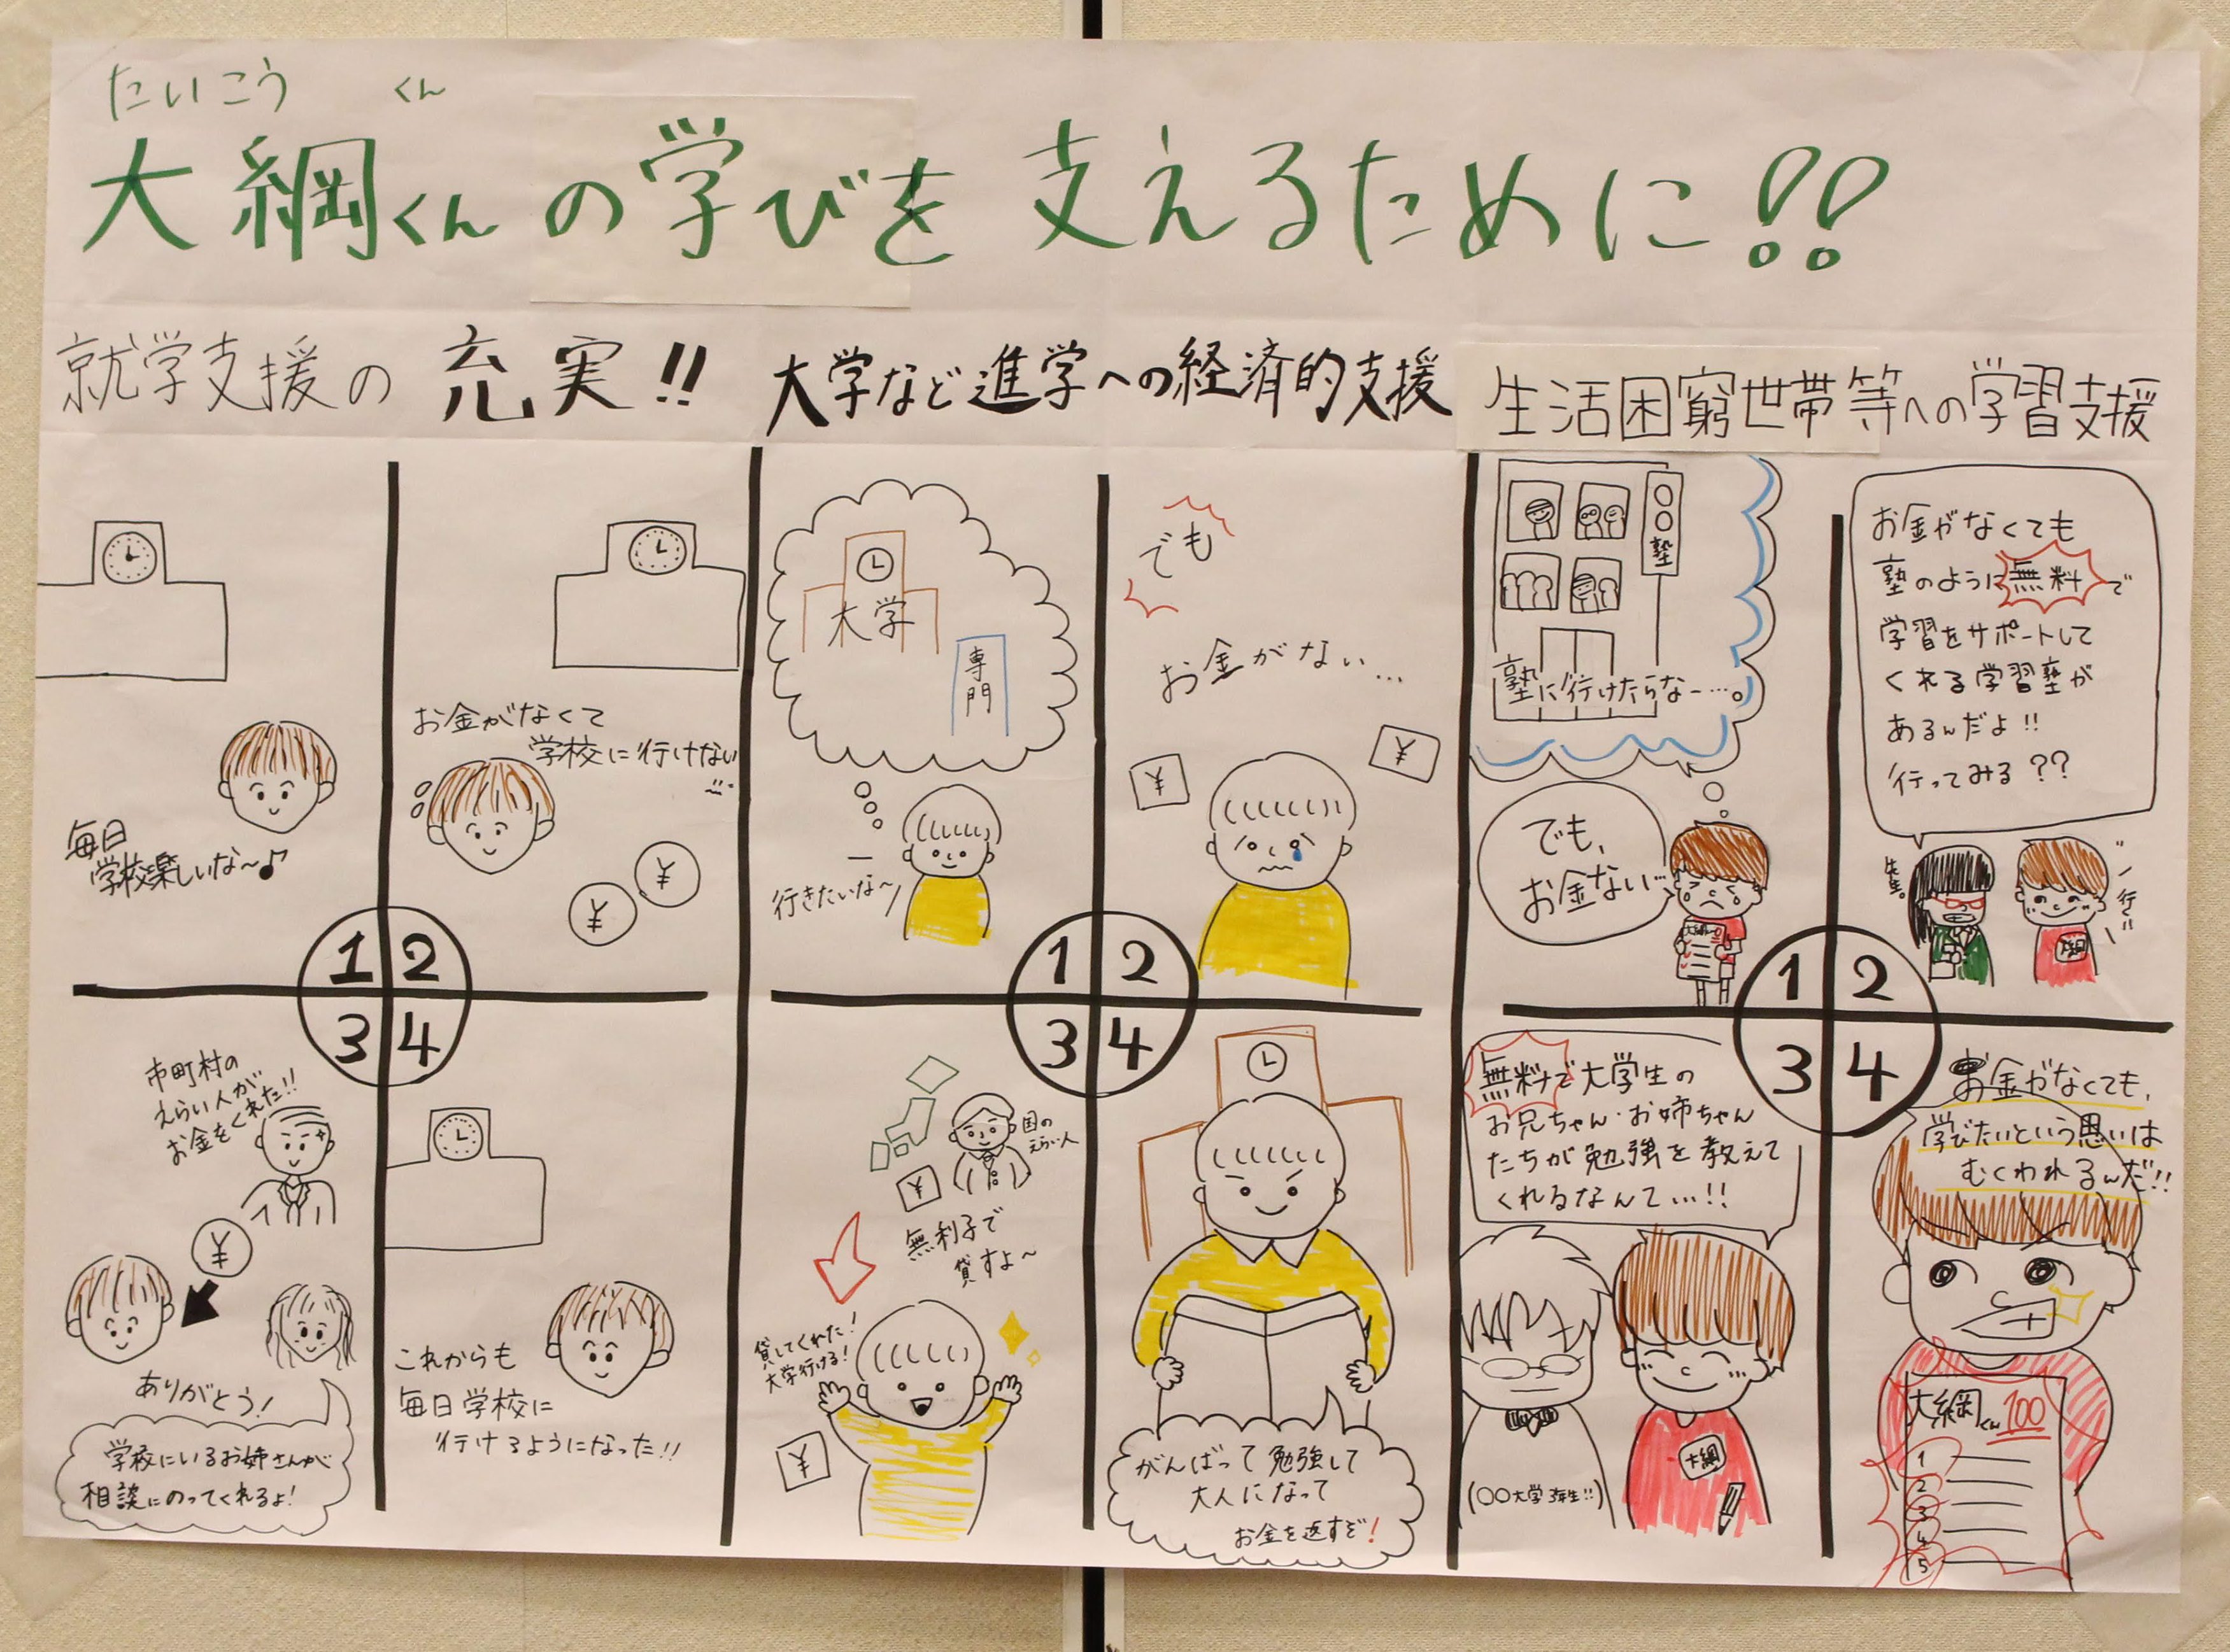 たいこう くん
大綱くんの学びを支えるために!!
就学支援の充実!!
毎日
学校楽しいな〜♪
1
お金がなくて
学校に行けない
¥
¥
2
市町村の
えらい人が
お金をくれた!!
¥
ありがとう!
学校にいるお姉さんが
相談にのってくれるよ!
3
これからも
毎日学校に
行けるようになった!!
4
大学など進学への経済的支援
大学
専門
行きたいな〜
1
でも
お金がない…
¥
¥
2
国の
えらい人
¥
無利子で
貸すよ〜
貸してくれた!
大学行ける!
¥
3
がんばって勉強して
大人になって
お金を返すぞ!
4
生活困窮世帯等への学習支援
○○塾
塾に行けたらなー…。
でも、
お金ない…
大綱
1
お金がなくても
塾のように無料で
学習をサポートして
くれる学習塾が
あるんだよ!!
行ってみる??
先生。
行く!!
大綱
2
無料で大学生の
お兄ちゃん・お姉ちゃん
たちが勉強を教えて
くれるなんて…!!
(○○大学3年生!!)
大綱
3
お金がなくても、
学びたいという思いは
むくわれるんだ!!
大綱くん 100
1
2
3
4
5
4